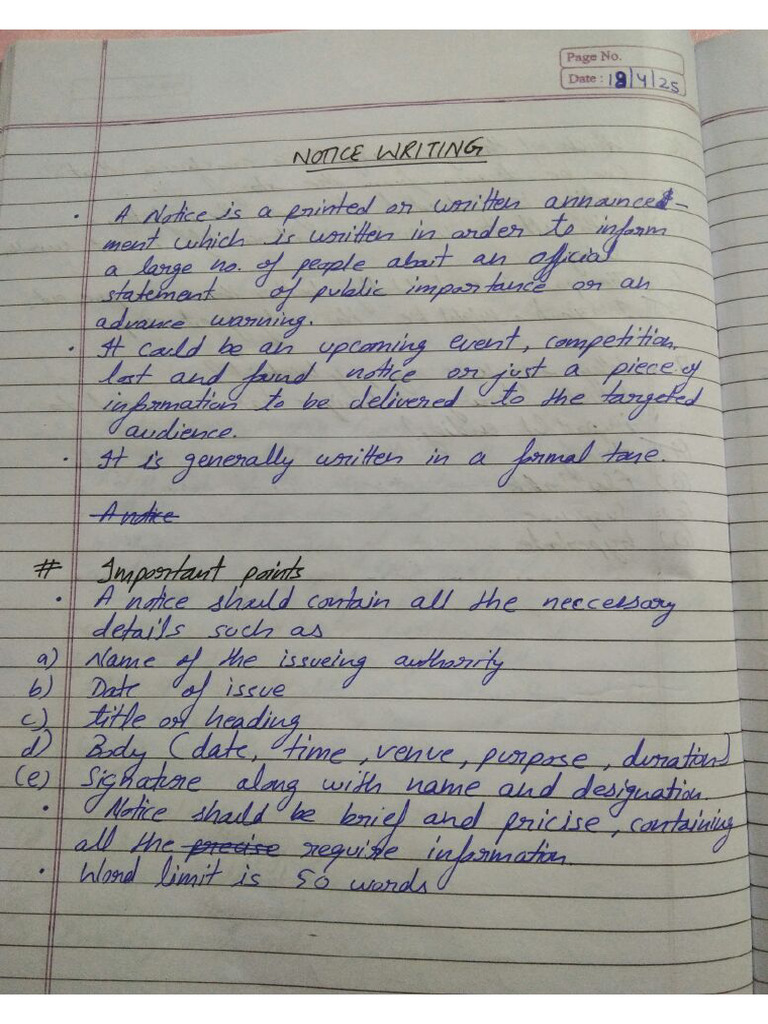 Page No.
Date: 18/4/25
NOTICE WRITING
• A Notice is a printed or written announce-
ment which is written in order to inform
a large no. of people about an official
statement of public importance or an
advance warning.
• It could be an upcoming event, competition,
lost and found notice or just a piece of
information to be delivered to the targeted
audience.
• It is generally written in a formal tone.
A notice
# Important points
• A notice should contain all the neccessary
details such as
a) Name of the issueing authority
b) Date of issue
c) title or heading
d) Body (date, time, venue, purpose, duration)
(e) Signature along with name and designation.
• Notice should be brief and pricise, containing
all the precise require information.
• Word limit is 50 words